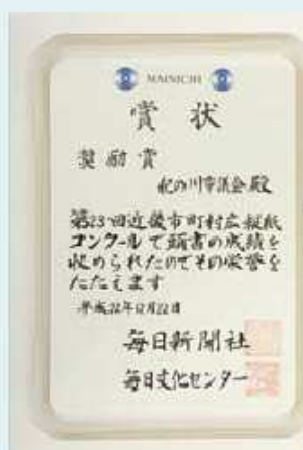 MAINICHI
賞状
奨励賞
紀の川市議会殿
第23回近畿市町村広報紙
コンクールで頭書の成績を
収められたのでその栄誉を
たたえます
平成22年12月22日
毎日新聞社
毎日文化センター